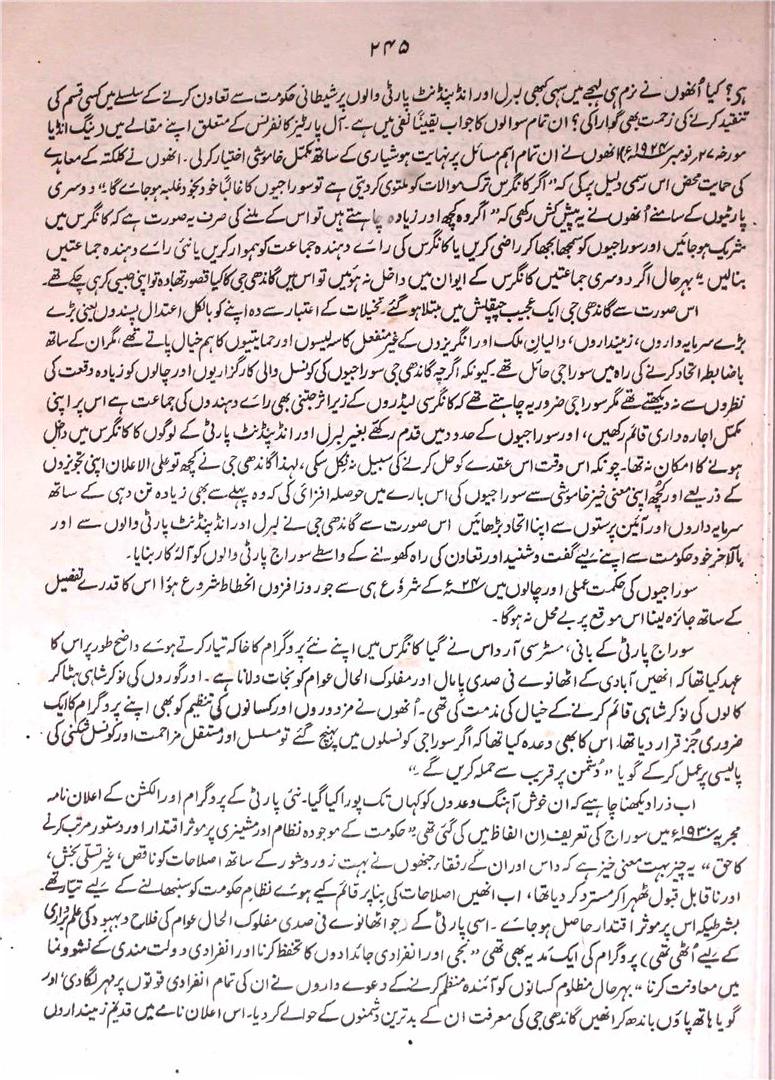 ۲۴۵
ہی؟ کیا اُنھوں نے نرم ہی لہجے میں سہی کبھی لبرل اور انڈپنڈنٹ پارٹی والوں پر شیطانی حکومت سے تعاون کرنے کے سلسلے میں کسی قسم کی
تنقید کرنے کی زحمت بھی گوارا کی؟ ان تمام سوالوں کا جواب یقیناً نفی میں ہے۔ آل پارٹیز کانفرنس کے متعلق اپنے مقالے میں (ینگ انڈیا
مورخہ ۲۷ نومبر ۱۹۲۴ء) انھوں نے ان تمام اہم مسائل پر نہایت ہوشیاری کے ساتھ مکمل خاموشی اختیار کر لی۔ انھوں نے کلکتہ کے معاہدے
کی حمایت محض اس رسمی دلیل پر کی کہ "اگر کانگرس ترک موالات کو ملتوی کر دیتی ہے تو سوراجیوں کا غالباً خود بخود غلبہ ہو جائے گا۔" دوسری
پارٹیوں کے سامنے اُنھوں نے یہ پیش کش رکھی کہ "اگر وہ کچھ اور زیادہ چاہتے ہیں تو اس کے ملنے کی صرف یہ صورت ہے کہ کانگرس میں
شریک ہو جائیں اور سوراجیوں کو سمجھا بجھا کر راضی کریں یا کانگرس کی رائے دہندہ جماعت کو ہموار کریں یا نئی رائے دہندہ جماعتیں
بنالیں۔" بہر حال اگر دوسری جماعتیں کانگرس کے ایوان میں داخل نہ ہوئیں تو اس میں گاندھی جی کا کیا قصور تھا وہ تو اپنی جیسی کر ہی چکے تھے۔
اس صورت سے گاندھی جی ایک عجیب چپقلش میں مبتلا ہو گئے۔ تخیلات کے اعتبار سے وہ اپنے کو بالکل اعتدال پسندوں یعنی بڑے
بڑے سرمایہ داروں، زمینداروں، والیان ملک اور انگریزوں کے غیر منفعل کاسہ لیسوں اور حمایتیوں کا ہم خیال پاتے تھے، مگر ان کے ساتھ
باضابطہ اتحاد کرنے کی راہ میں سوراجی حائل تھے۔ کیونکہ اگرچہ گاندھی جی سوراجیوں کی کونسل والی کارگزاریوں اور چالوں کو زیادہ وقعت کی
نظروں سے نہ دیکھتے تھے مگر سوراجی ضرور یہ چاہتے تھے کہ کانگرسی لیڈروں کے زیر اثر جتنی بھی رائے دہندوں کی جماعت ہے اس پر اپنی
مکمل اجارہ داری قائم رکھیں، اور سوراجیوں کے حدود میں قدم رکھے بغیر لبرل اور انڈپنڈنٹ پارٹی کے لوگوں کا کانگرس میں داخل
ہونے کا امکان نہ تھا۔ چونکہ اس وقت اس عقدے کو حل کرنے کی سبیل نہ نکل سکی، لہذا گاندھی جی نے کچھ تو علی الاعلان اپنی تجویزوں
کے ذریعے اور کچھ اپنی معنی خیز خاموشی سے سوراجیوں کی اس بارے میں حوصلہ افزائی کی کہ وہ پہلے سے بھی زیادہ تن دہی کے ساتھ
سرمایہ داروں اور آئین پرستوں سے اپنا اتحاد بڑھائیں اس صورت سے گاندھی جی نے لبرل اور انڈپنڈنٹ پارٹی والوں سے اور
بالآخر خود حکومت سے اپنے لیے گفت وشنید اور تعاون کی راہ کھولنے کے واسطے سوراج پارٹی والوں کو آلۂ کار بنایا۔
سوراجیوں کی حکمت عملی اور چالوں میں ۲۴ء کے شروع ہی سے جو روز افزوں انحطاط شروع ہوا اس کا قدرے تفصیل
کے ساتھ جائزہ لینا اس موقع پر بے محل نہ ہوگا۔
سوراج پارٹی کے بانی، مسٹر سی آر داس نے گیا کانگرس میں اپنے نئے پروگرام کا خاکہ تیار کرتے ہوئے واضح طور پر اس کا
عہد کیا تھا کہ انھیں آبادی کے اٹھانوے فی صدی پامال اور مفلوک الحال عوام کو نجات دلانا ہے۔ اور گوروں کی نوکر شاہی ہٹا کر
کالوں کی نوکر شاہی قائم کرنے کے خیال کی مذمت کی تھی۔ اُنھوں نے مزدوروں اور کسانوں کی تنظیم کو بھی اپنے پروگرام کا ایک
ضروری جُز قرار دیا تھا۔ اس کا بھی وعدہ کیا تھا کہ اگر سوراجی کونسلوں میں پہنچ گئے تو مسلسل اور مستقل مزاحمت اور کونسل شکنی کی
پالیسی پر عمل کر کے گویا "دُشمن پر قریب سے حملہ کریں گے۔"
اب ذرا دیکھنا چاہیے کہ ان خوش آہنگ وعدوں کو کہاں تک پورا کیا گیا۔ نئی پارٹی کے پروگرام اور الکشن کے اعلان نامہ
مجریہ ۱۹۳۰ء میں سوراج کی تعریف ان الفاظ میں کی گئی تھی۔ "حکومت کے موجودہ نظام اور مشینری پر موثر اقتدار اور دستور مرتب کرنے
کا حق" یہ چیز بہت معنی خیز ہے کہ داس اور ان کے رفقا، جنھوں نے بہت زور و شور کے ساتھ اصلاحات کو ناقص، غیر تسلی بخش،
اور ناقابل قبول ٹھہرا کر مسترد کر دیا تھا، اب انھیں اصلاحات کی بنا پر قائم کیے ہوئے نظام حکومت کو سنبھالنے کے لیے تیار تھے۔
بشرطیکہ اس پر موثر اقتدار حاصل ہو جائے۔ اسی پارٹی کے (جو اٹھانوے فی صدی مفلوک الحال عوام کی فلاح و بہبود کی علم برداری
کے لیے اُٹھی تھی) پروگرام کی ایک مد یہ بھی تھی "نجی اور انفرادی جائدادوں کا تحفظ کرنا اور انفرادی دولت مندی کے نشوونما
میں معاونت کرنا" بہر حال مظلوم کسانوں کو آئندہ منظم کرنے کے دعوے داروں نے ان کی تمام انفرادی قوتوں پر مہر لگا دی، اور
گویا ہاتھ پاؤں باندھ کر انھیں گاندھی جی کی معرفت ان کے بدترین دشمنوں کے حوالے کر دیا۔ اس اعلان نامے میں قدیم زمینداروں